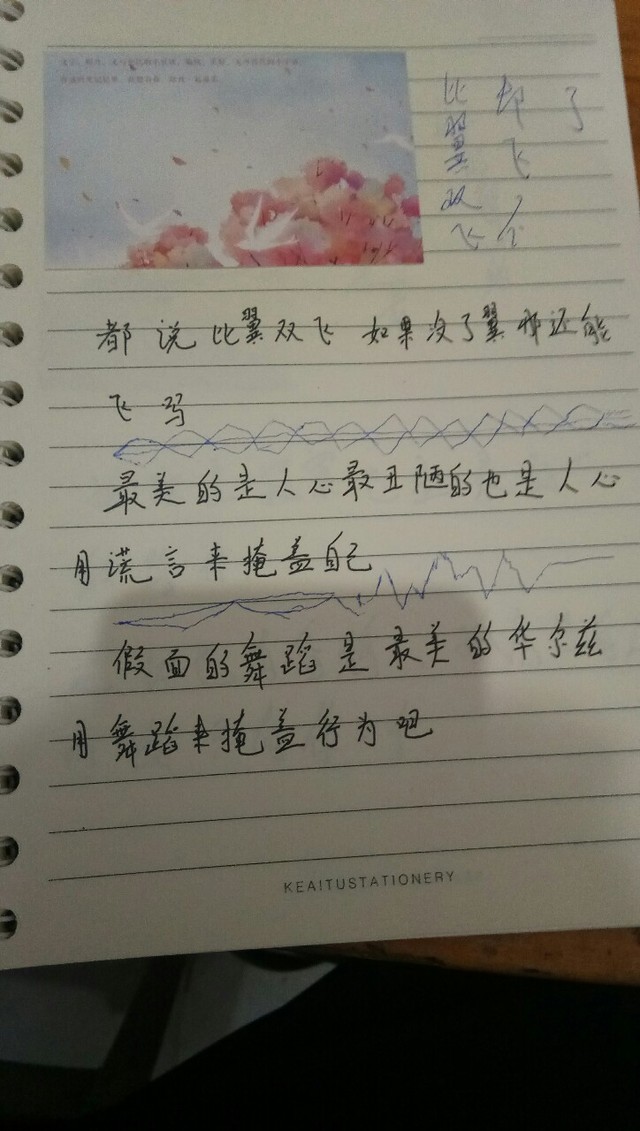 比翼双飞
却飞个
了
都说比翼双飞 如果没了翼那还能
飞吗
最美的是人心最丑陋的也是人心
用谎言来掩盖自己
假面的舞蹈是最美的华尔兹
用舞蹈来掩盖行为吧
KEAITUSTATIONERY